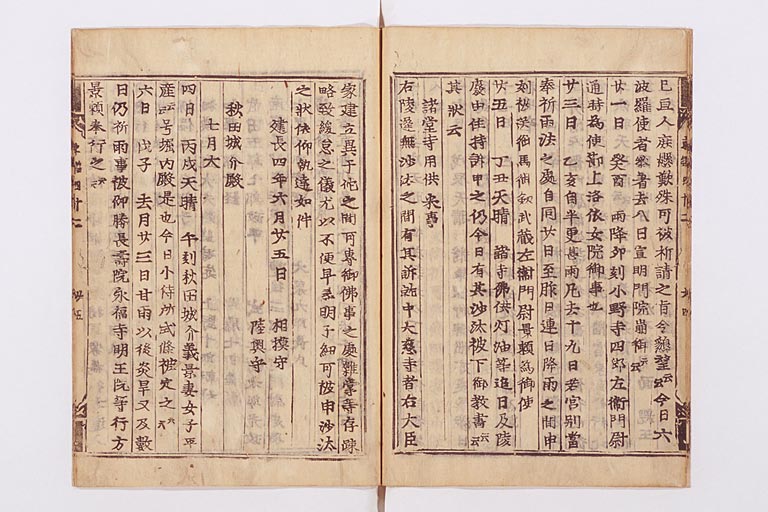 巳且人庶爆歎殊可被祈請之旨令懇望云云今日六
波羅使者參著去八日宣明門院崩御云云
廿一日 癸酉 雨降卯刻小野寺四郎左衛門尉
通時為使節上洛依女院御事也
廿三日 乙亥自半更甚雨凡去十九日若宮別當
奉祈雨法之處自同廿日至昨日連日降雨之間申
刻被送御馬御劔武藏左衛門尉景頼為御使
廿五日 丁丑天晴 諸寺佛供灯油等追日及陵
廢由住持訴申之仍今日有其沙汰被下御教書云云
其狀云
諸堂寺用供米事
右陵遲無沙汰之間有其訴就中大慈寺者右大臣
家建立異于他之間可專御佛事之處雜掌等存踈
略致緩怠之儀尤以不便早尋明子細可被申沙汰
之狀依仰執達如件
建長四年六月廿五日 相摸守
陸奧守
秋田城介殿
七月大
四日 丙戌天晴 午刻秋田城介義景妻女子平
産云云号堀内殿是也今日小侍所式條被定之云云
六日 戊子 去月廿三日甘雨以後炎旱又及數
日仍祈雨事被仰勝長壽院永福寺明王院等行方
景頼奉行之云云